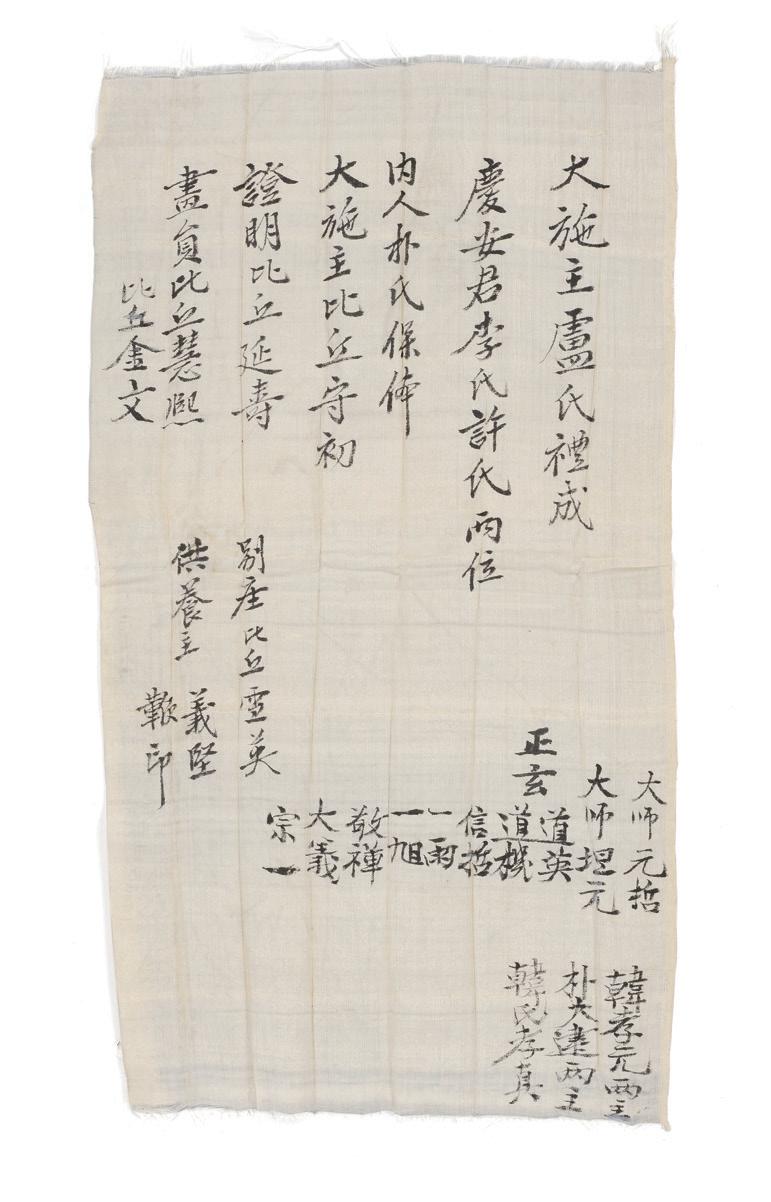 大施主盧氏禮成
慶安君李氏許氏兩位
內人朴氏保体
大施主比丘守初
證明比丘延壽
畵員比丘慧熙
比丘金文
別座比丘雪英
供養主 義堅
印
大師元哲
大師坦元
正玄
道英
道機
信哲
一雨
一旭
敬禪
大義
宗一
韓孝元兩主
朴大建兩主
韓氏孝真